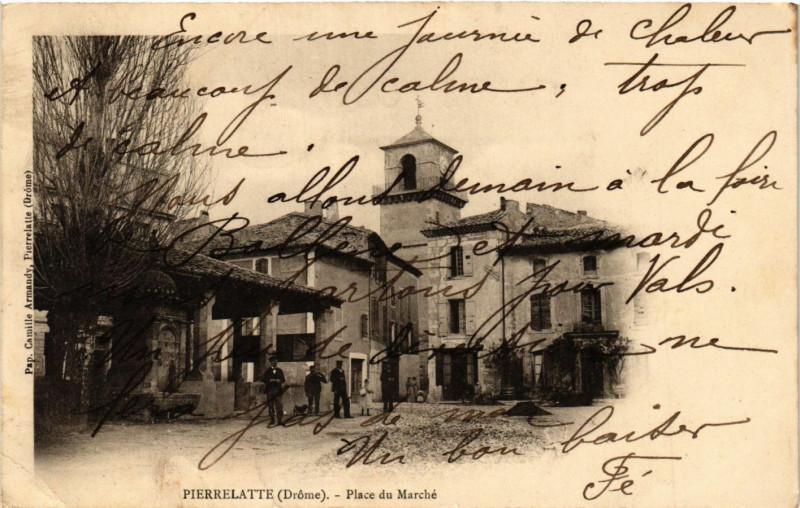 Encore une journée de chaleur
et beaucoup de calme, trop
de calme.
Nous allons demain à la foire
de Balleu et mardi
nous partons pour Vals.
Un peu de ne
fera pas de mal
Un bon baiser
Fé
Pap. Camille Armandy, Pierrelatte (Drôme)
PIERRELATTE (Drôme). - Place du Marché